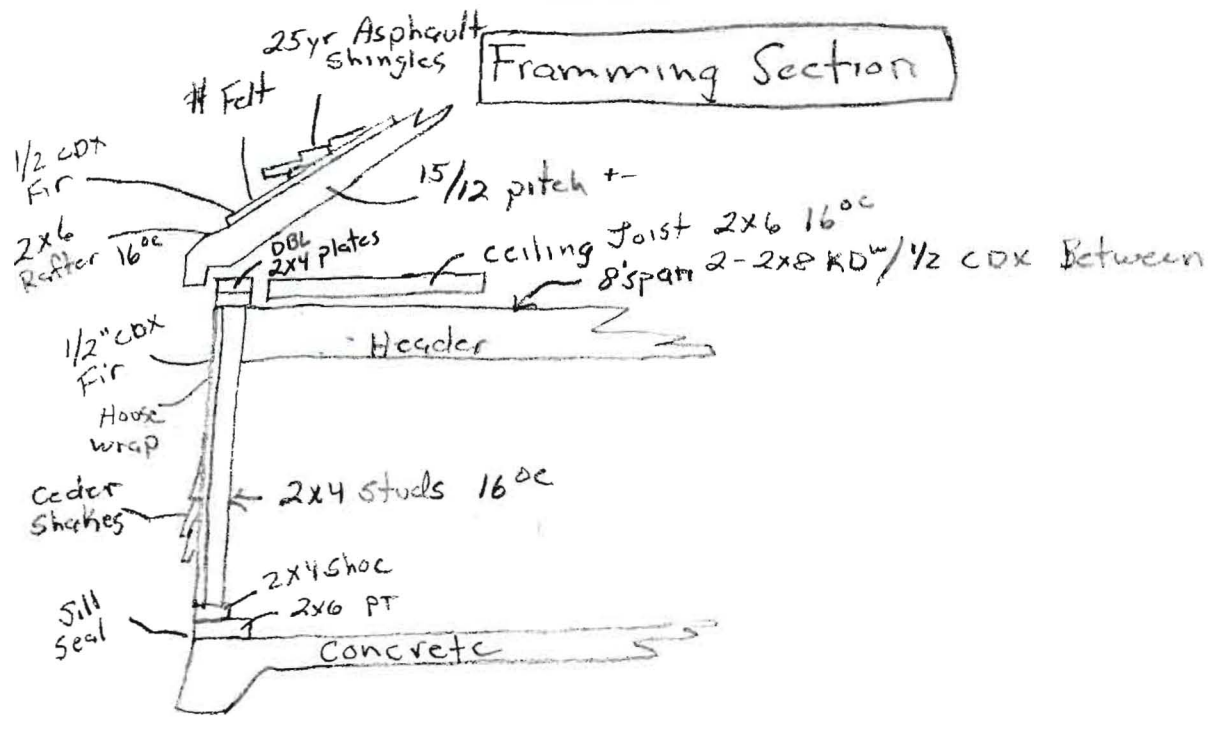 25yr Asphault
Shingles
Framming Section
# Felt
1/2 CDX
Fir
15/12 pitch +-
2x6
Rafter 16"oc
DBL
2x4 plates
ceiling Joist 2x6 16"oc
8'span 2-2x8 KD w/ 1/2 CDX Between
Header
1/2" CDX
Fir
House
wrap
Ceder
Shakes
2x4 Studs 16"oc
2x4 Shoe
2x6 PT
Sill
Seal
Concrete